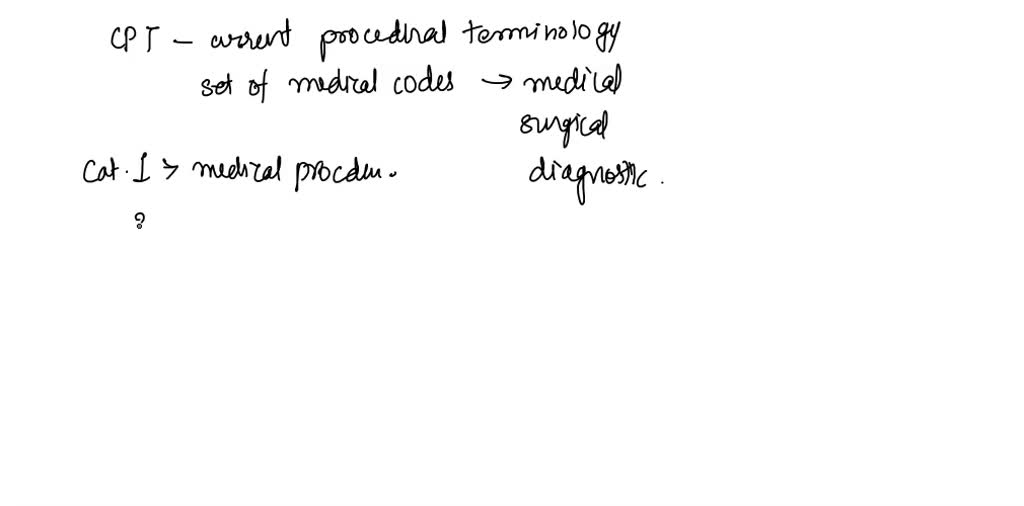 CPT – current procedural terminology
set of medical codes → medical
surgical
Cat. I > medical procedu. diagnostic.
?